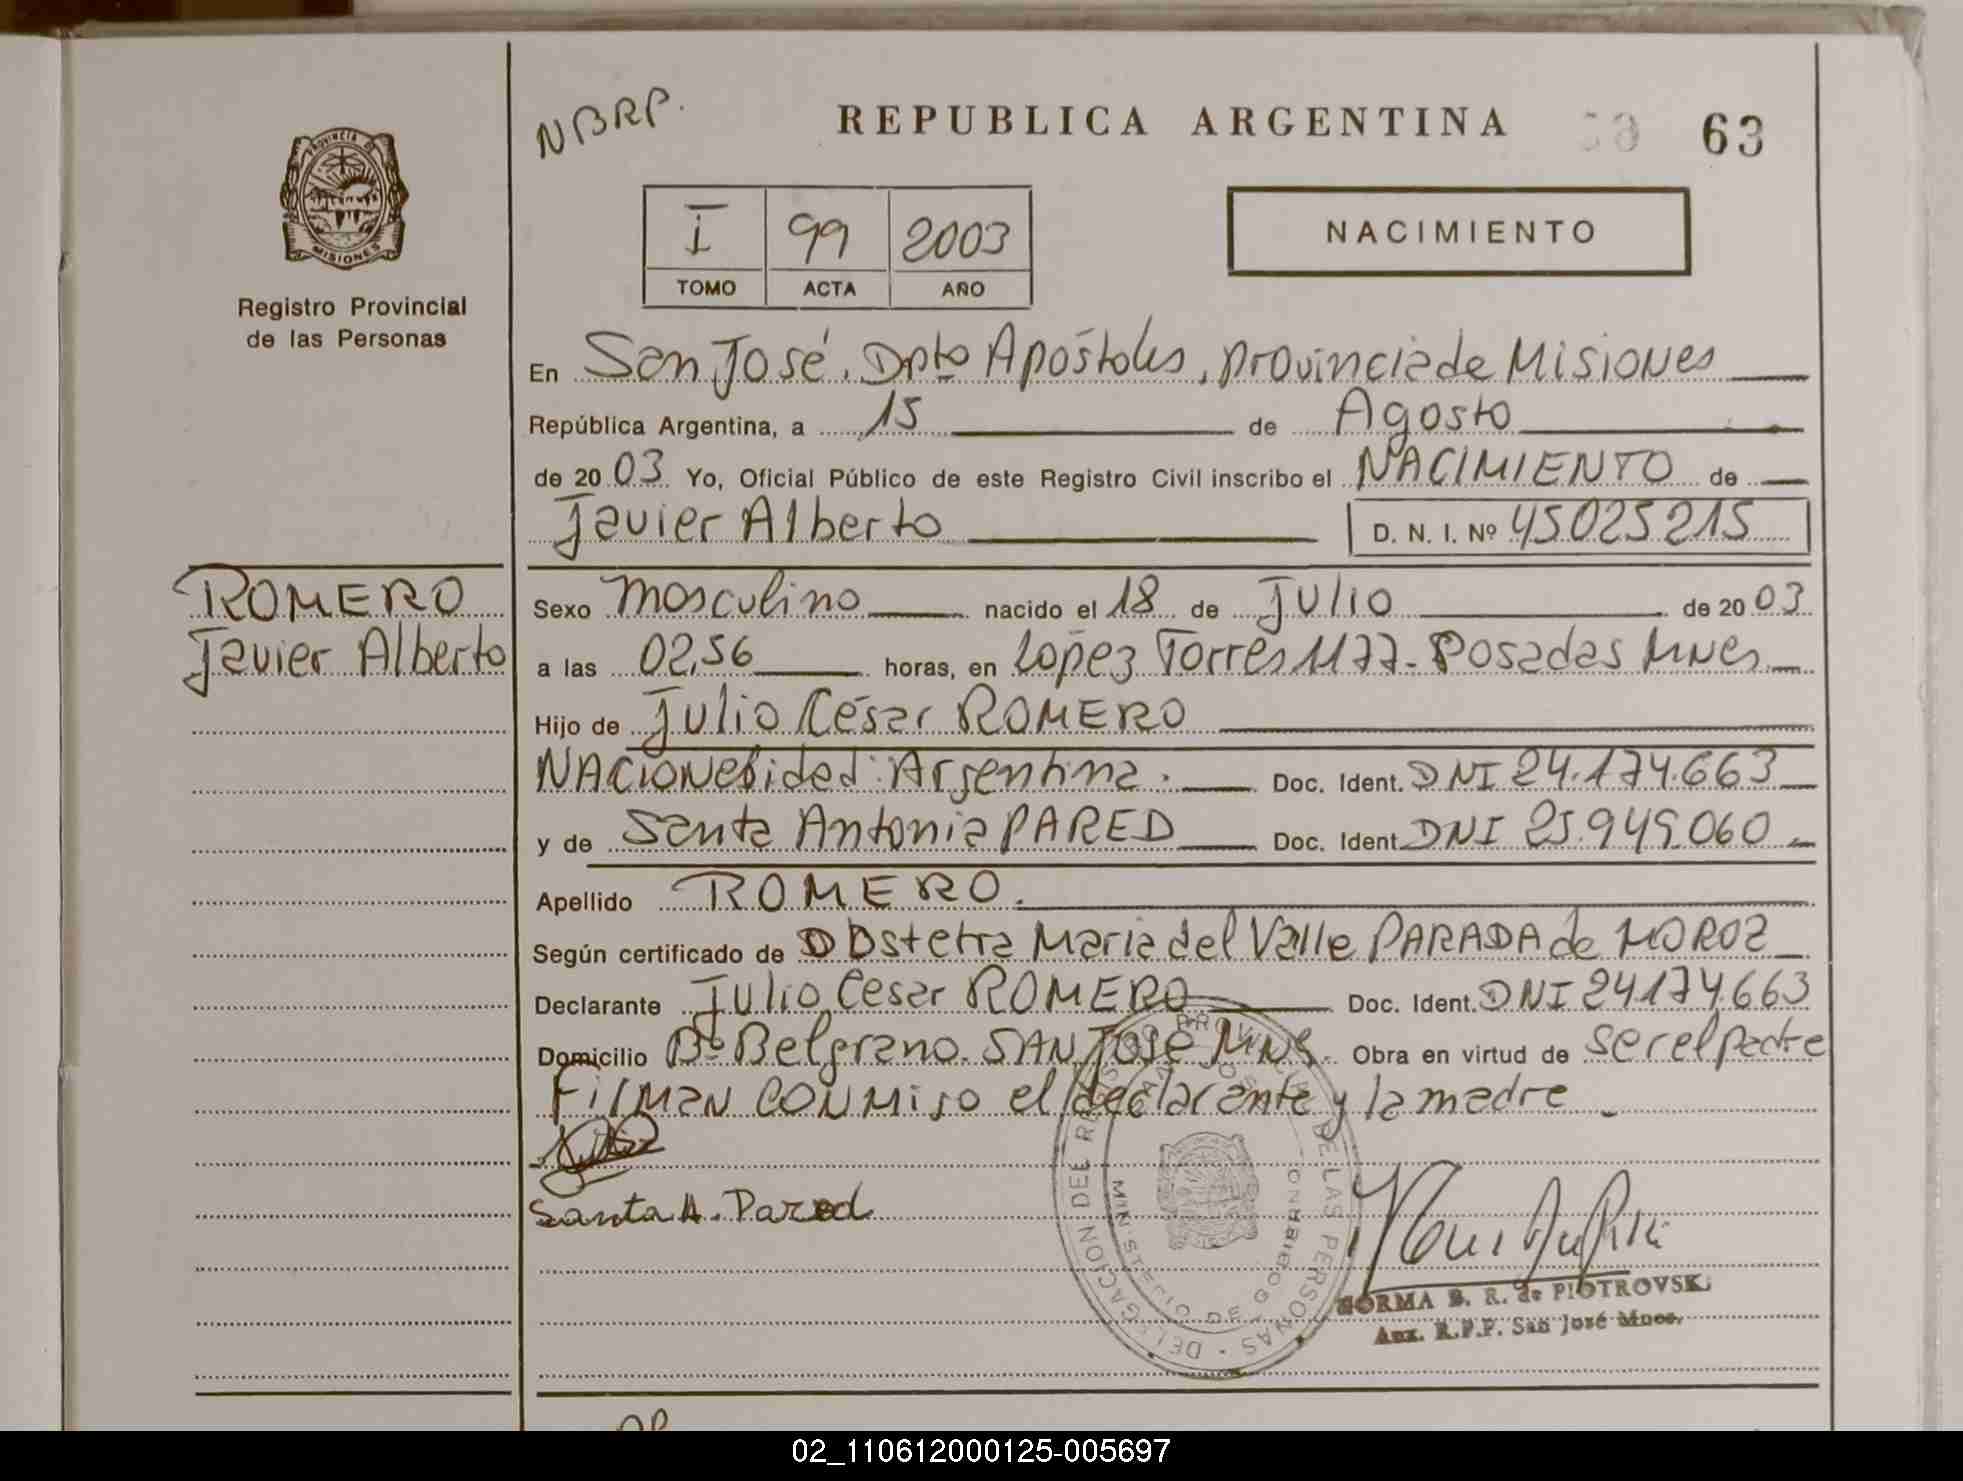 NBRP.
REPUBLICA ARGENTINA
63
PROVINCIA DE
MISIONES
Registro Provincial
de las Personas
I 99 2003
TOMO ACTA AÑO
NACIMIENTO
En San José, Dpto Apóstoles, provincia de Misiones
República Argentina, a 15 de Agosto
de 2003 Yo, Oficial Público de este Registro Civil inscribo el NACIMIENTO de
Javier Alberto D. N. I. Nº 45025215
ROMERO
Javier Alberto
Sexo masculino nacido el 18 de Julio de 2003
a las 02,56 horas, en López Torres 1177- Posadas Mnes
Hijo de Julio César ROMERO
Nacionalidad: Argentina. Doc. Ident. DNI 24.174.663
y de Santa Antonia PARED Doc. Ident. DNI 25.949.060
Apellido ROMERO.
Según certificado de Obstetra Maria del Valle PARADA de MOROZ
Declarante Julio Cesar ROMERO Doc. Ident. DNI 24174.663
Domicilio Bº Belgrano. SAN José Mnes. Obra en virtud de ser el padre
Firman conmigo el declarante y la madre
Santa A. Pared
DELEGACION DEL REGISTRO PROVINCIAL DE LAS PERSONAS
SAN JOSE
MINISTERIO DE GOBIERNO
NORMA B. R. de PIOTROVSKI
Aux. R.P.P. San José Mnes.
02_110612000125-005697